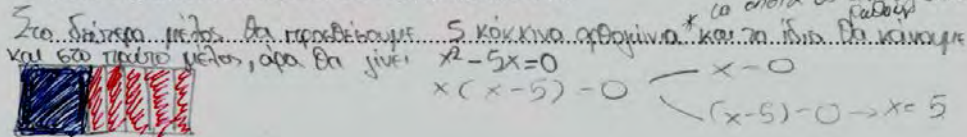 τα οποία
Στο δεύτερο μέλος θα προσθέσουμε 5 κόκκινα ορθογώνια * και το ίδιο θα κάνουμε
και στο πρώτο μέλος, άρα θα γίνει x²-5x=0
x(x-5)-0
x-0
(x-5)-0→x=5